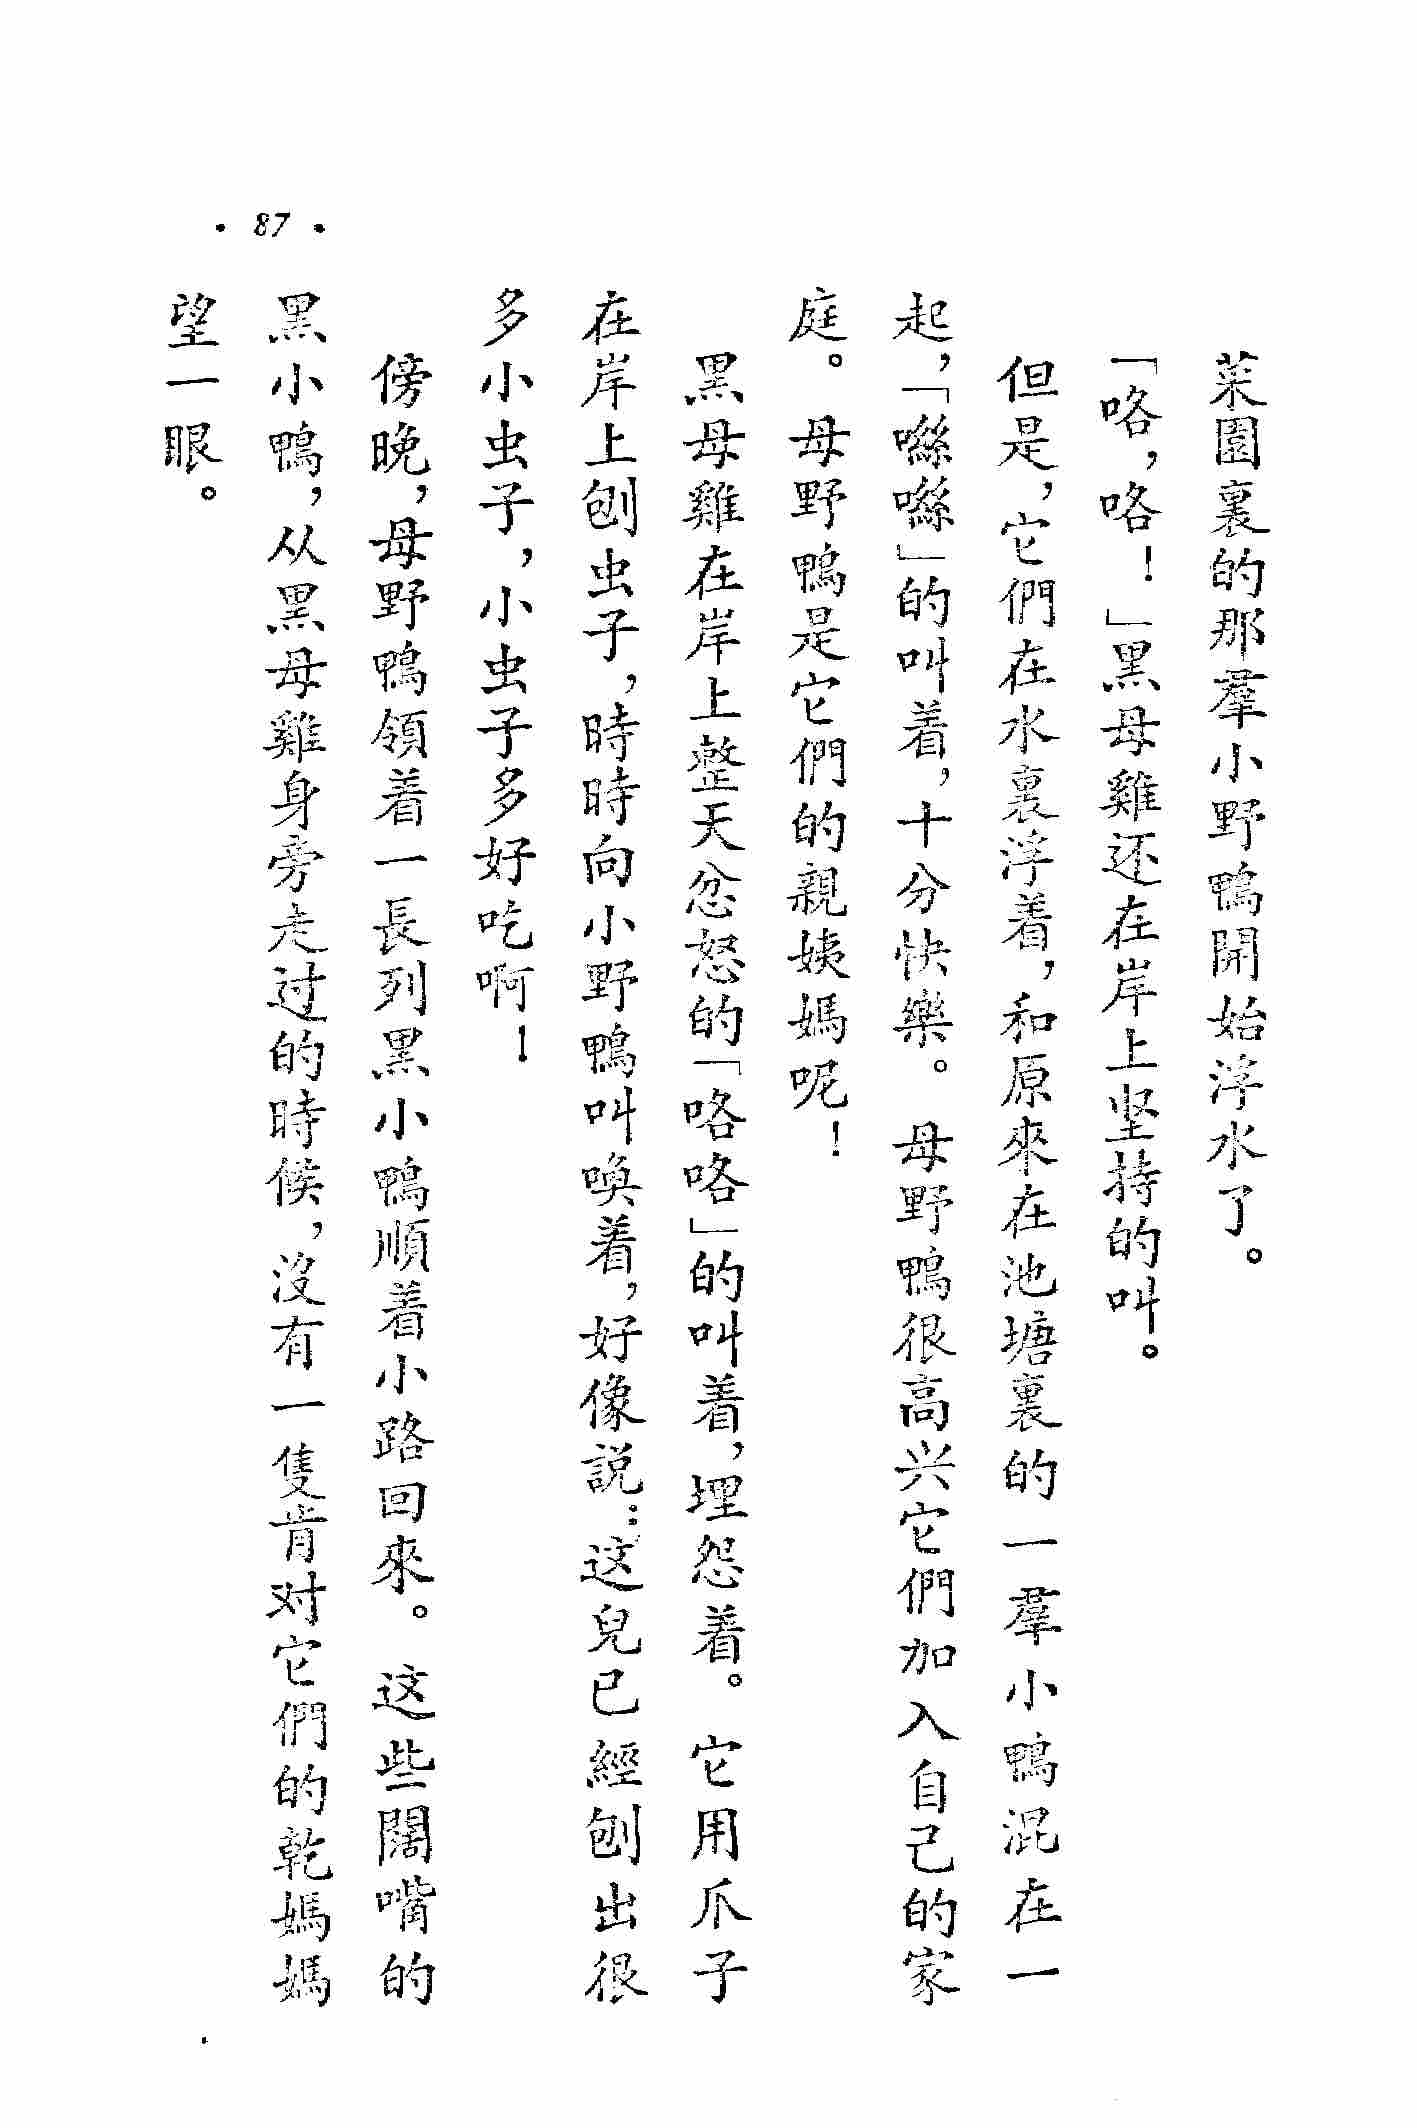 · 87 ·
菜園裏的那羣小野鴨開始浮水了。
「咯，咯！」黑母雞还在岸上坚持的叫。
但是，它們在水裏浮着，和原來在池塘裏的一羣小鴨混在一
起，「噝噝」的叫着，十分快樂。母野鴨很高兴它們加入自己的家
庭。母野鴨是它們的親姨媽呢！
黑母雞在岸上整天忿怒的「咯咯」的叫着，埋怨着。它用爪子
在岸上刨虫子，時時向小野鴨叫喚着，好像説：这兒已經刨出很
多小虫子，小虫子多好吃啊！
傍晚，母野鴨領着一長列黑小鴨順着小路回來。这些闊嘴的
黑小鴨，从黑母雞身旁走过的時候，沒有一隻肯对它們的乾媽媽
望一眼。